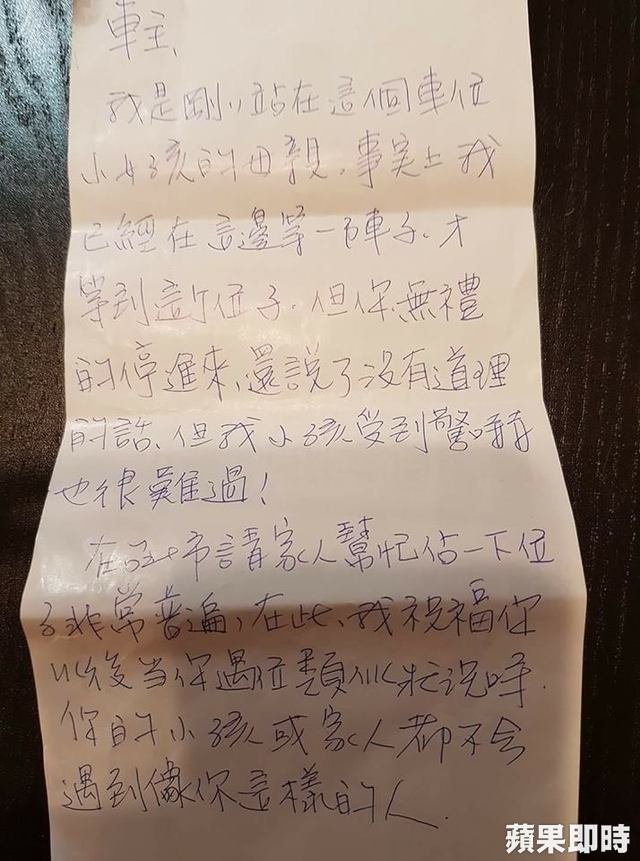 車主、
我是剛剛站在這個車位
小女孩的母親，事实上我
已經在這邊等一陣子，才
等到這个位子，但你無禮
的停進來，還説了沒有道理
的話、但我小孩受到驚嚇
也很難過！
在台北市請家人幫忙佔一下位
子非常普遍，在此，我祝福你
以後当你遇位類似狀況時．
你的小孩或家人都不会
遇到像你這樣的人．
蘋果即時